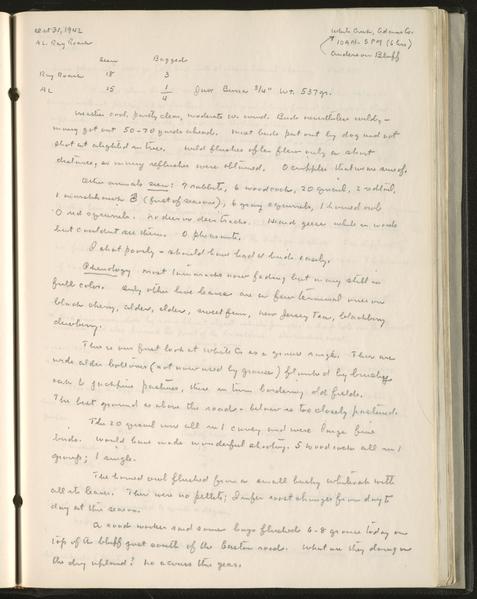 Oct 31, 1942
AL Ray Roark
White Creek, Adams Co.
10 AM - 5 PM (6 hrs)
Anderson Bluff
Seen Bagged
Ray Roark 18 3
AL 15 1
4
537 gr.
Weather cool, partly clear, moderate w. wind. Birds nevertheless wildly -
many got out 50-70 yards ahead. Most birds put out by dog and not
shot at alighted in trees. Wild flushes often flew only a short
distance, so many reflushes were obtained. 0 cripples that we are sure of.
Other animals seen: 7 rabbits, 6 woodcocks, 20 quail,
1 marsh hawk (first of season), 6 gray squirrels, 1 horned owl
0 red squirrels. No deer or deer tracks. Heard geese while in woods
but couldn't see them. 0 pheasants.
I shot poorly - should have had birds easily.
Phenology Most tamaracks now fading but many still in
full color. Only other live leaves are a few terminal ones on
black cherry, alder, elder, sweet fern, New Jersey Tea, blackberry
dewberry.
This is our first look at White Cr. as a grouse range. There are
wide alder bottoms (not now used by grouse) flanked by brushy
oak & jackpine pastures, these in turn bordering old fields.
The best ground is above the roads - below is too closely pastured.
The 20 quail were all in 1 covey and were large fine
birds. Would have made wonderful shooting. 5 woodcocks all in 1
group; 1 single.
The horned owl flushed from a small bushy white oak with
all its leaves. There were no pellets; I infer roost changes from day to
day at this season.
A road worker said some boys flushed 6-8 grouse today on
top of a bluff just south of the Easton road. What are they doing on
the dry upland? No acorns this year.